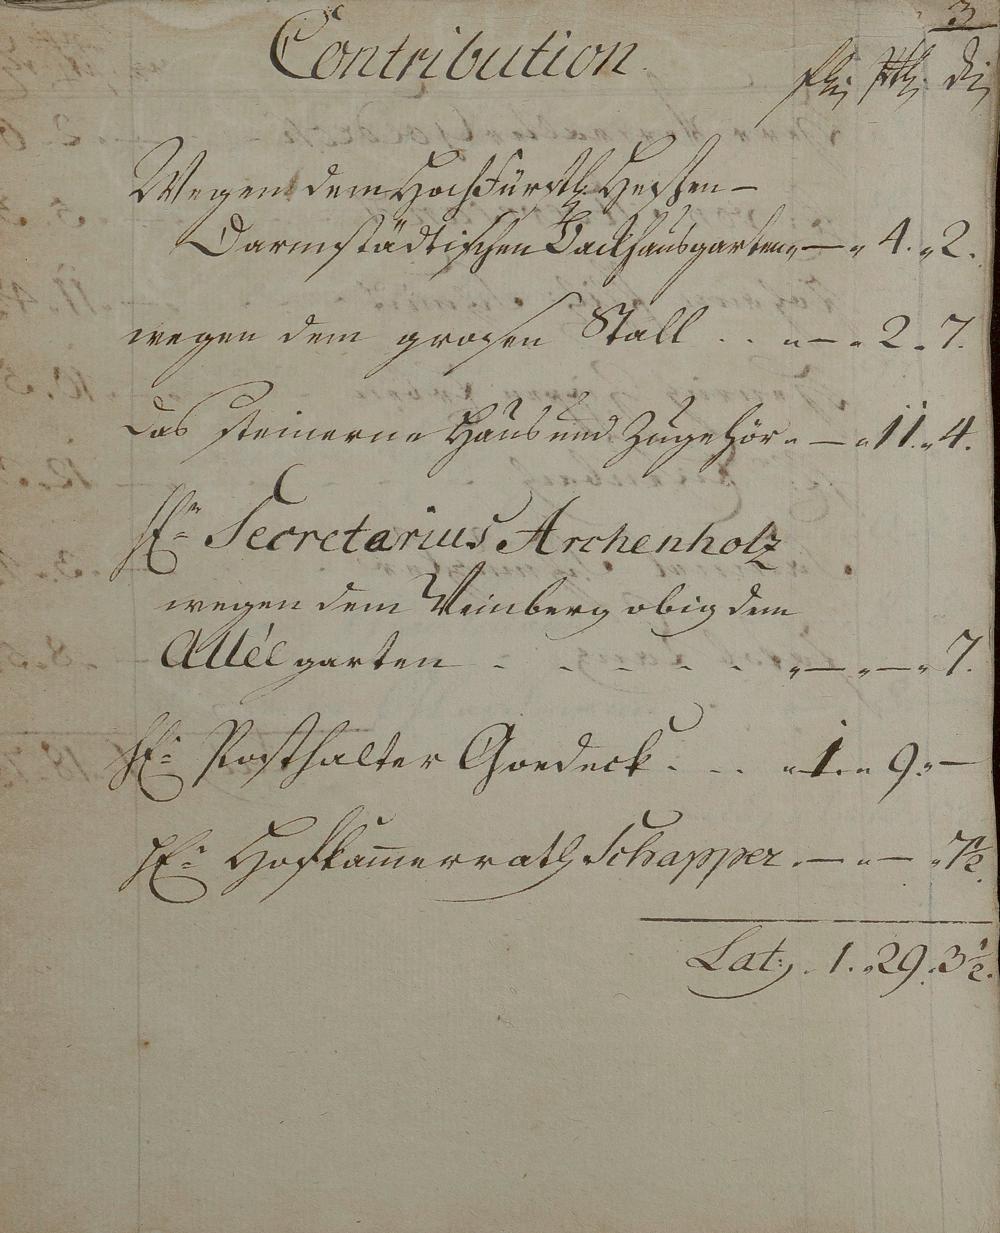 3
Contribution
fl. dl.
Wegen dem HochFürstl. Hessen-
Darmstädtischen Backhausgarten „ — „ 4. „ 2.
wegen dem grosen Stall . . „ — „ 2 „ 7.
das steinerne Haus und Zugehör „ — „ 11. „ 4.
Hr. Secretarius Archenholz
wegen dem Weinberg obig dem
Alléé garten - - - - - „ — „ — „ 7.
Hr. Posthalter Goedeck . . . „ 1. „ 9. „ —
Hr. Hofkam̅errath Schapper . — „ — „ 7½.
Lat: . 1. „ 29. 3½.